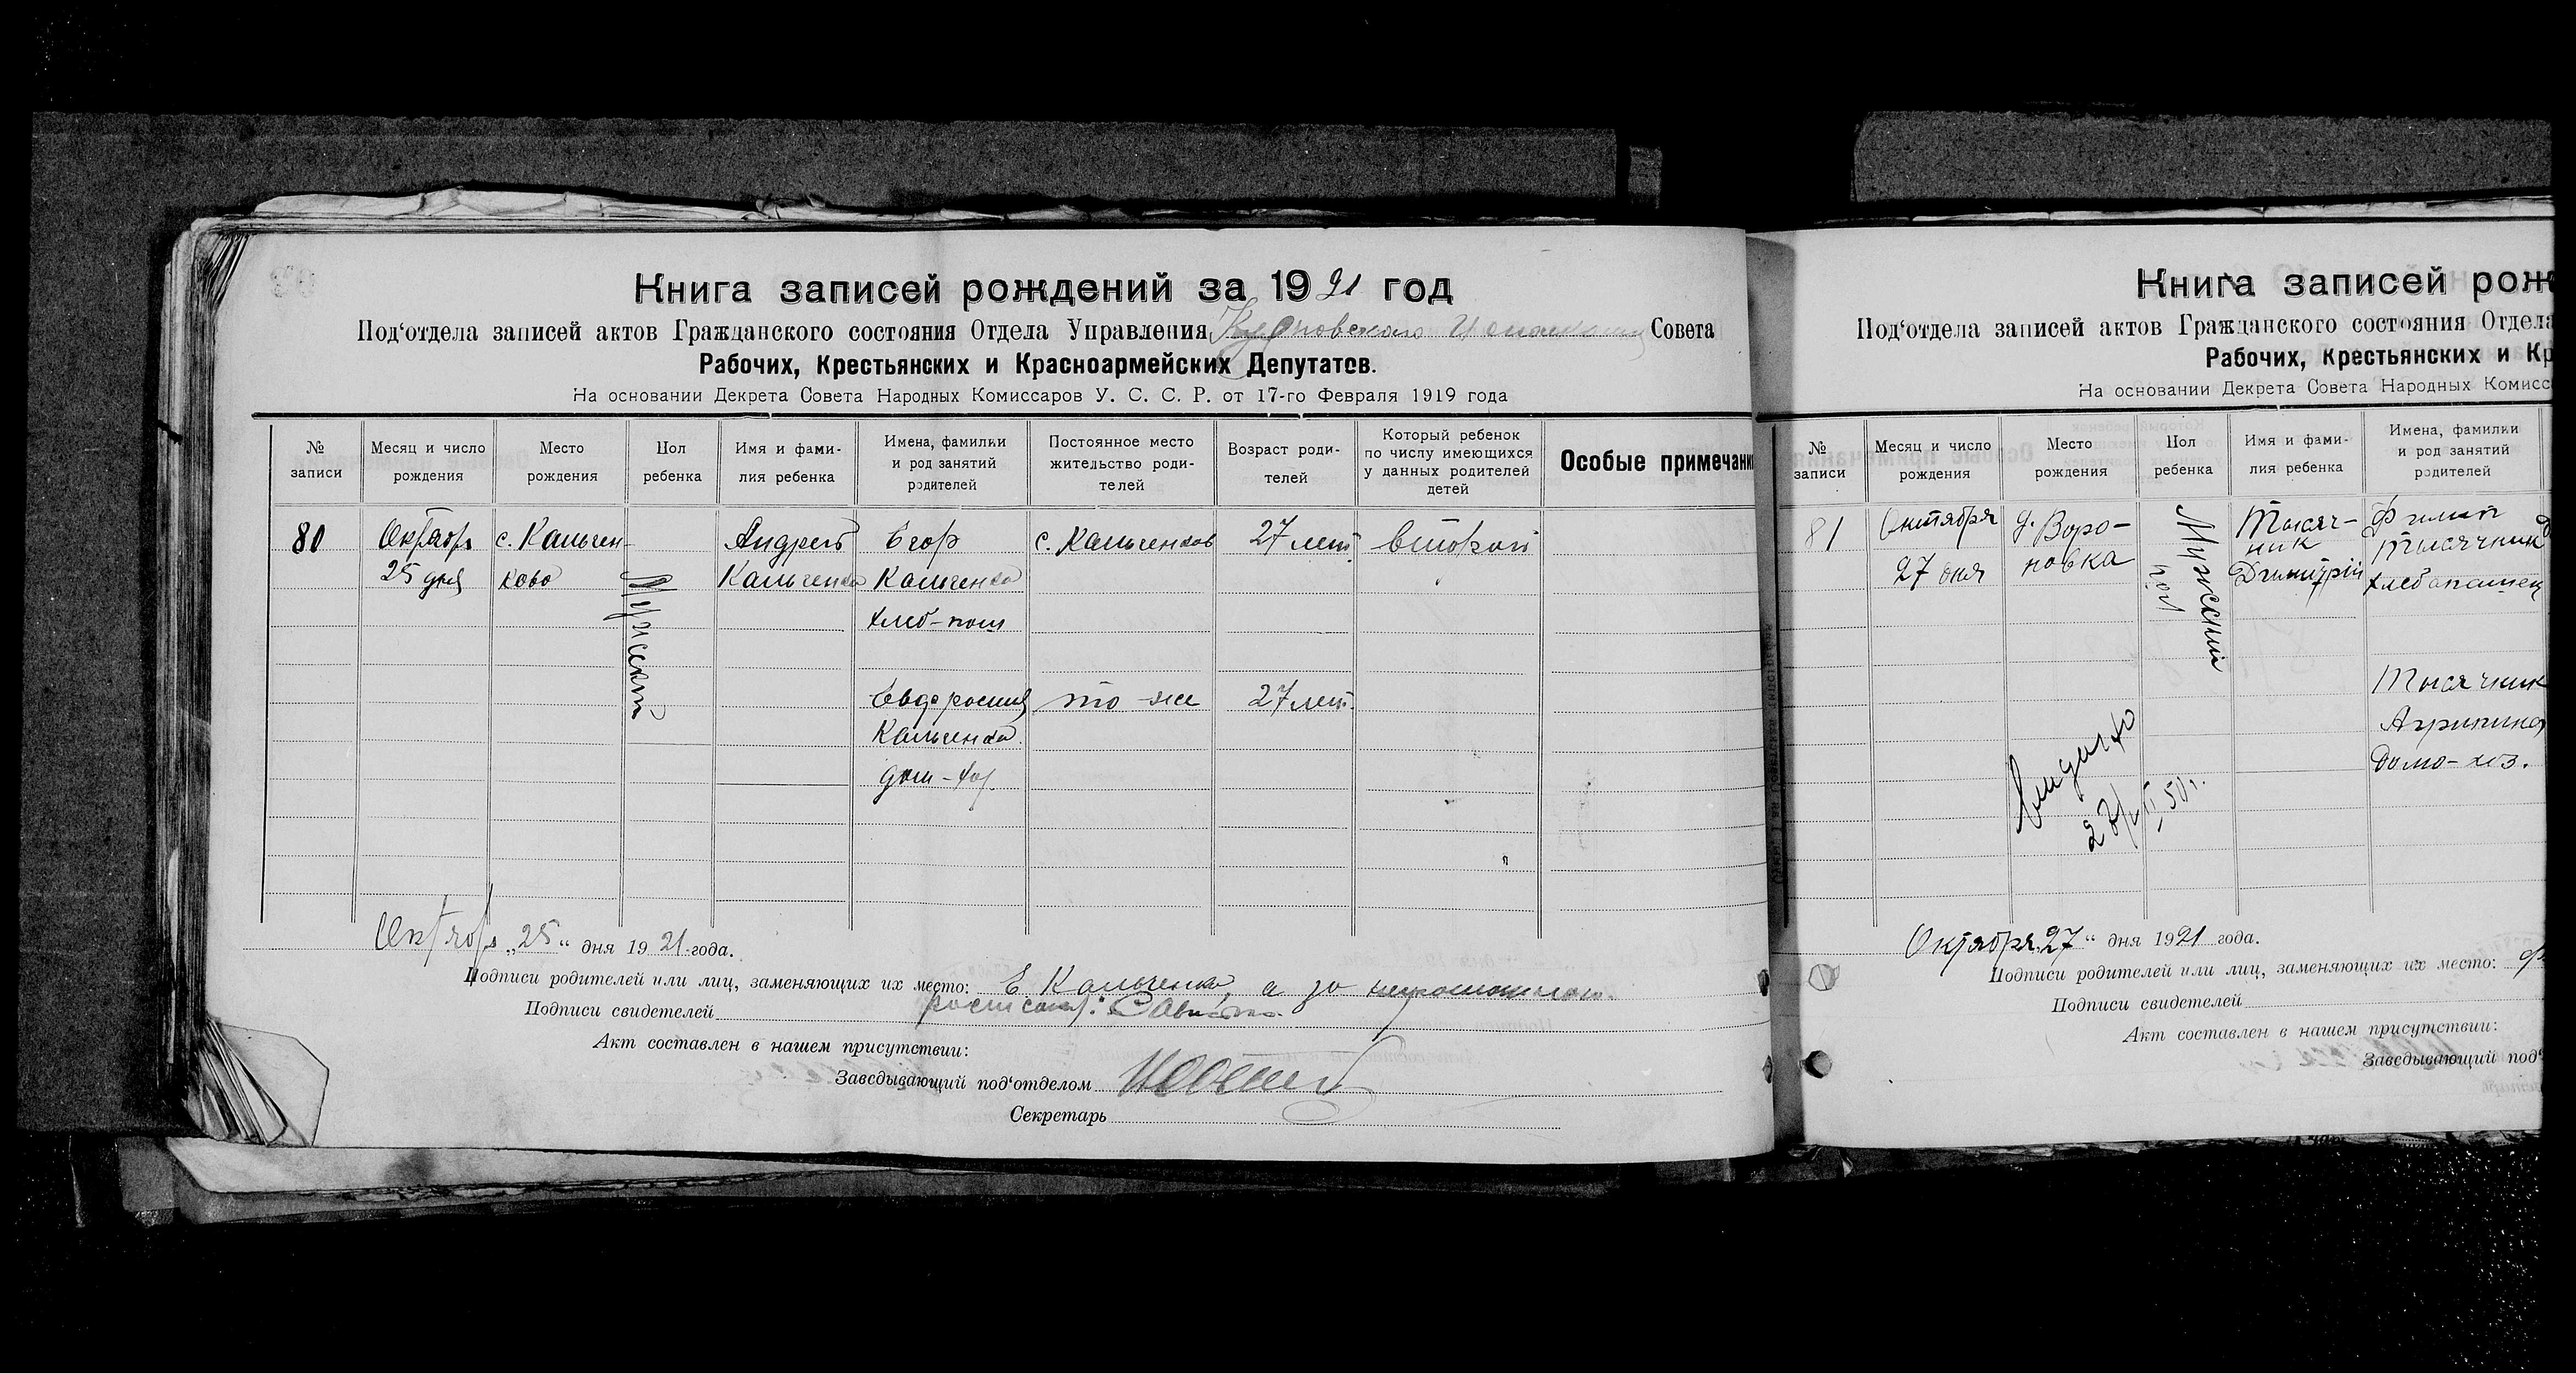 Книга записей рождений за 1921 год
Под‘отдела записей актов Гражданского состояния Отдела Управления Совета
Рабочих, Крестьянских и Красноармейских Депутатов.
На основании Декрета Совета Народных Комиссаров У. С. С. Р. от 17-го Февраля 1919 года
№ записи
Месяц и число рождения
Место рождения
Пол ребенка
Имя и фами- лия ребенка
Имена, фамилии и род занятий родителей
Постоянное место жительство роди- телей
Возраст роди- телей
Который ребенок по числу имеющихся у данных родителей детей
Особые примечани
80
Октября
25 дня
с. Кальчен-
ково
Мужской
Андрей
Кальченко
Егор
Кальченко
хлеб-паш
с. Кальченков
27 лет
второй
Евфросиния
Кальченко
дом-хоз.
то-же
27 лет
Октября „25“ дня 1921 года.
Подписи родителей или лиц, заменяющих их место: Е Кальченко, а за неграмотного
Подписи свидетелей
Акт составлен в нашем присутствии:
Заведывающий под‘отделом
Секретарь
Книга записей рож
Под‘отдела записей актов Гражданского состояния Отдела
Рабочих, Крестьянских и Кр
На основании Декрета Совета Народных Комисс
№ записи
Месяц и число рождения
Место рождения
Пол ребенка
Имя и фами- лия ребенка
Имена, фамилии и род занятий родителей
81
Октября
27 дня
д. Воро-
новка
Мужский
пол
Тысяч-
ник
Димитрій
Филип
Тысячник
хлебопашец
Тысячник
Агрипина
домо-хоз.
Октября „27“ дня 1921 года.
Подписи родителей или лиц, заменяющих их место:
Подписи свидетелей
Акт составлен в нашем присутствии:
Заведывающий под‘